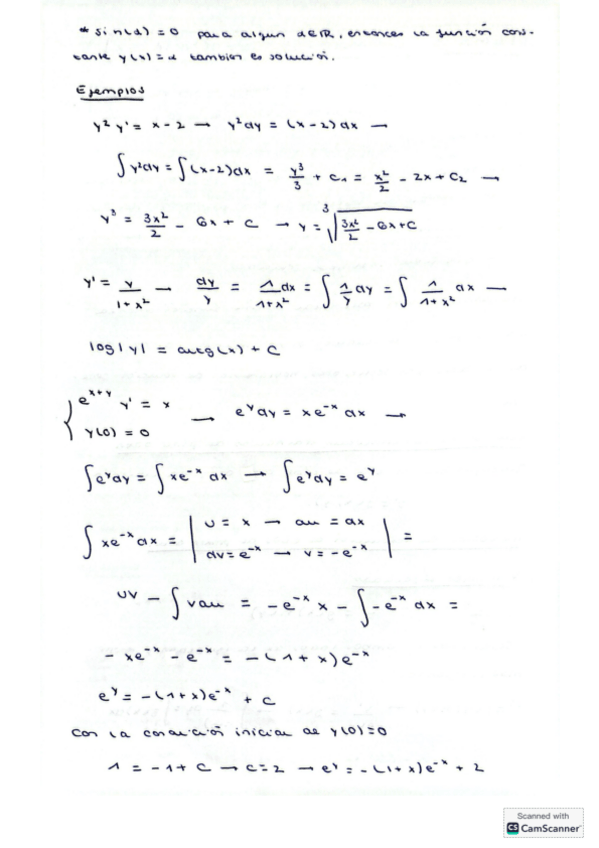 * sin(α) = 0 para algun α∈ℝ, entonces la función cons-
tante y(x) = α tambien es solución.
Ejemplos
y² y' = x - 2 → y² dy = (x - 2) dx →
∫ y² dy = ∫ (x - 2) dx = y³/3 + C₁ = x²/2 - 2x + C₂ →
y³ = 3x²/2 - 6x + C → y = ³√(3x²/2 - 6x + C)
y' = y/(1+x²) → dy/y = 1/(1+x²) dx = ∫ 1/y dy = ∫ 1/(1+x²) dx →
log|y| = arctg(x) + C
{ e^(x+y) y' = x → e^y dy = x e^(-x) dx →
y(0) = 0
∫ e^y dy = ∫ x e^(-x) dx → ∫ e^y dy = e^y
∫ x e^(-x) dx = | u = x → du = dx
dv = e^(-x) → v = -e^(-x) | =
uv - ∫ v du = -e^(-x) x - ∫ -e^(-x) dx =
- x e^(-x) - e^(-x) = -(1 + x) e^(-x)
e^y = -(1 + x) e^(-x) + C
Con la condición inicial de y(0) = 0
1 = -1 + C → C = 2 → e^y = -(1 + x) e^(-x) + 2
Scanned with
CS CamScanner